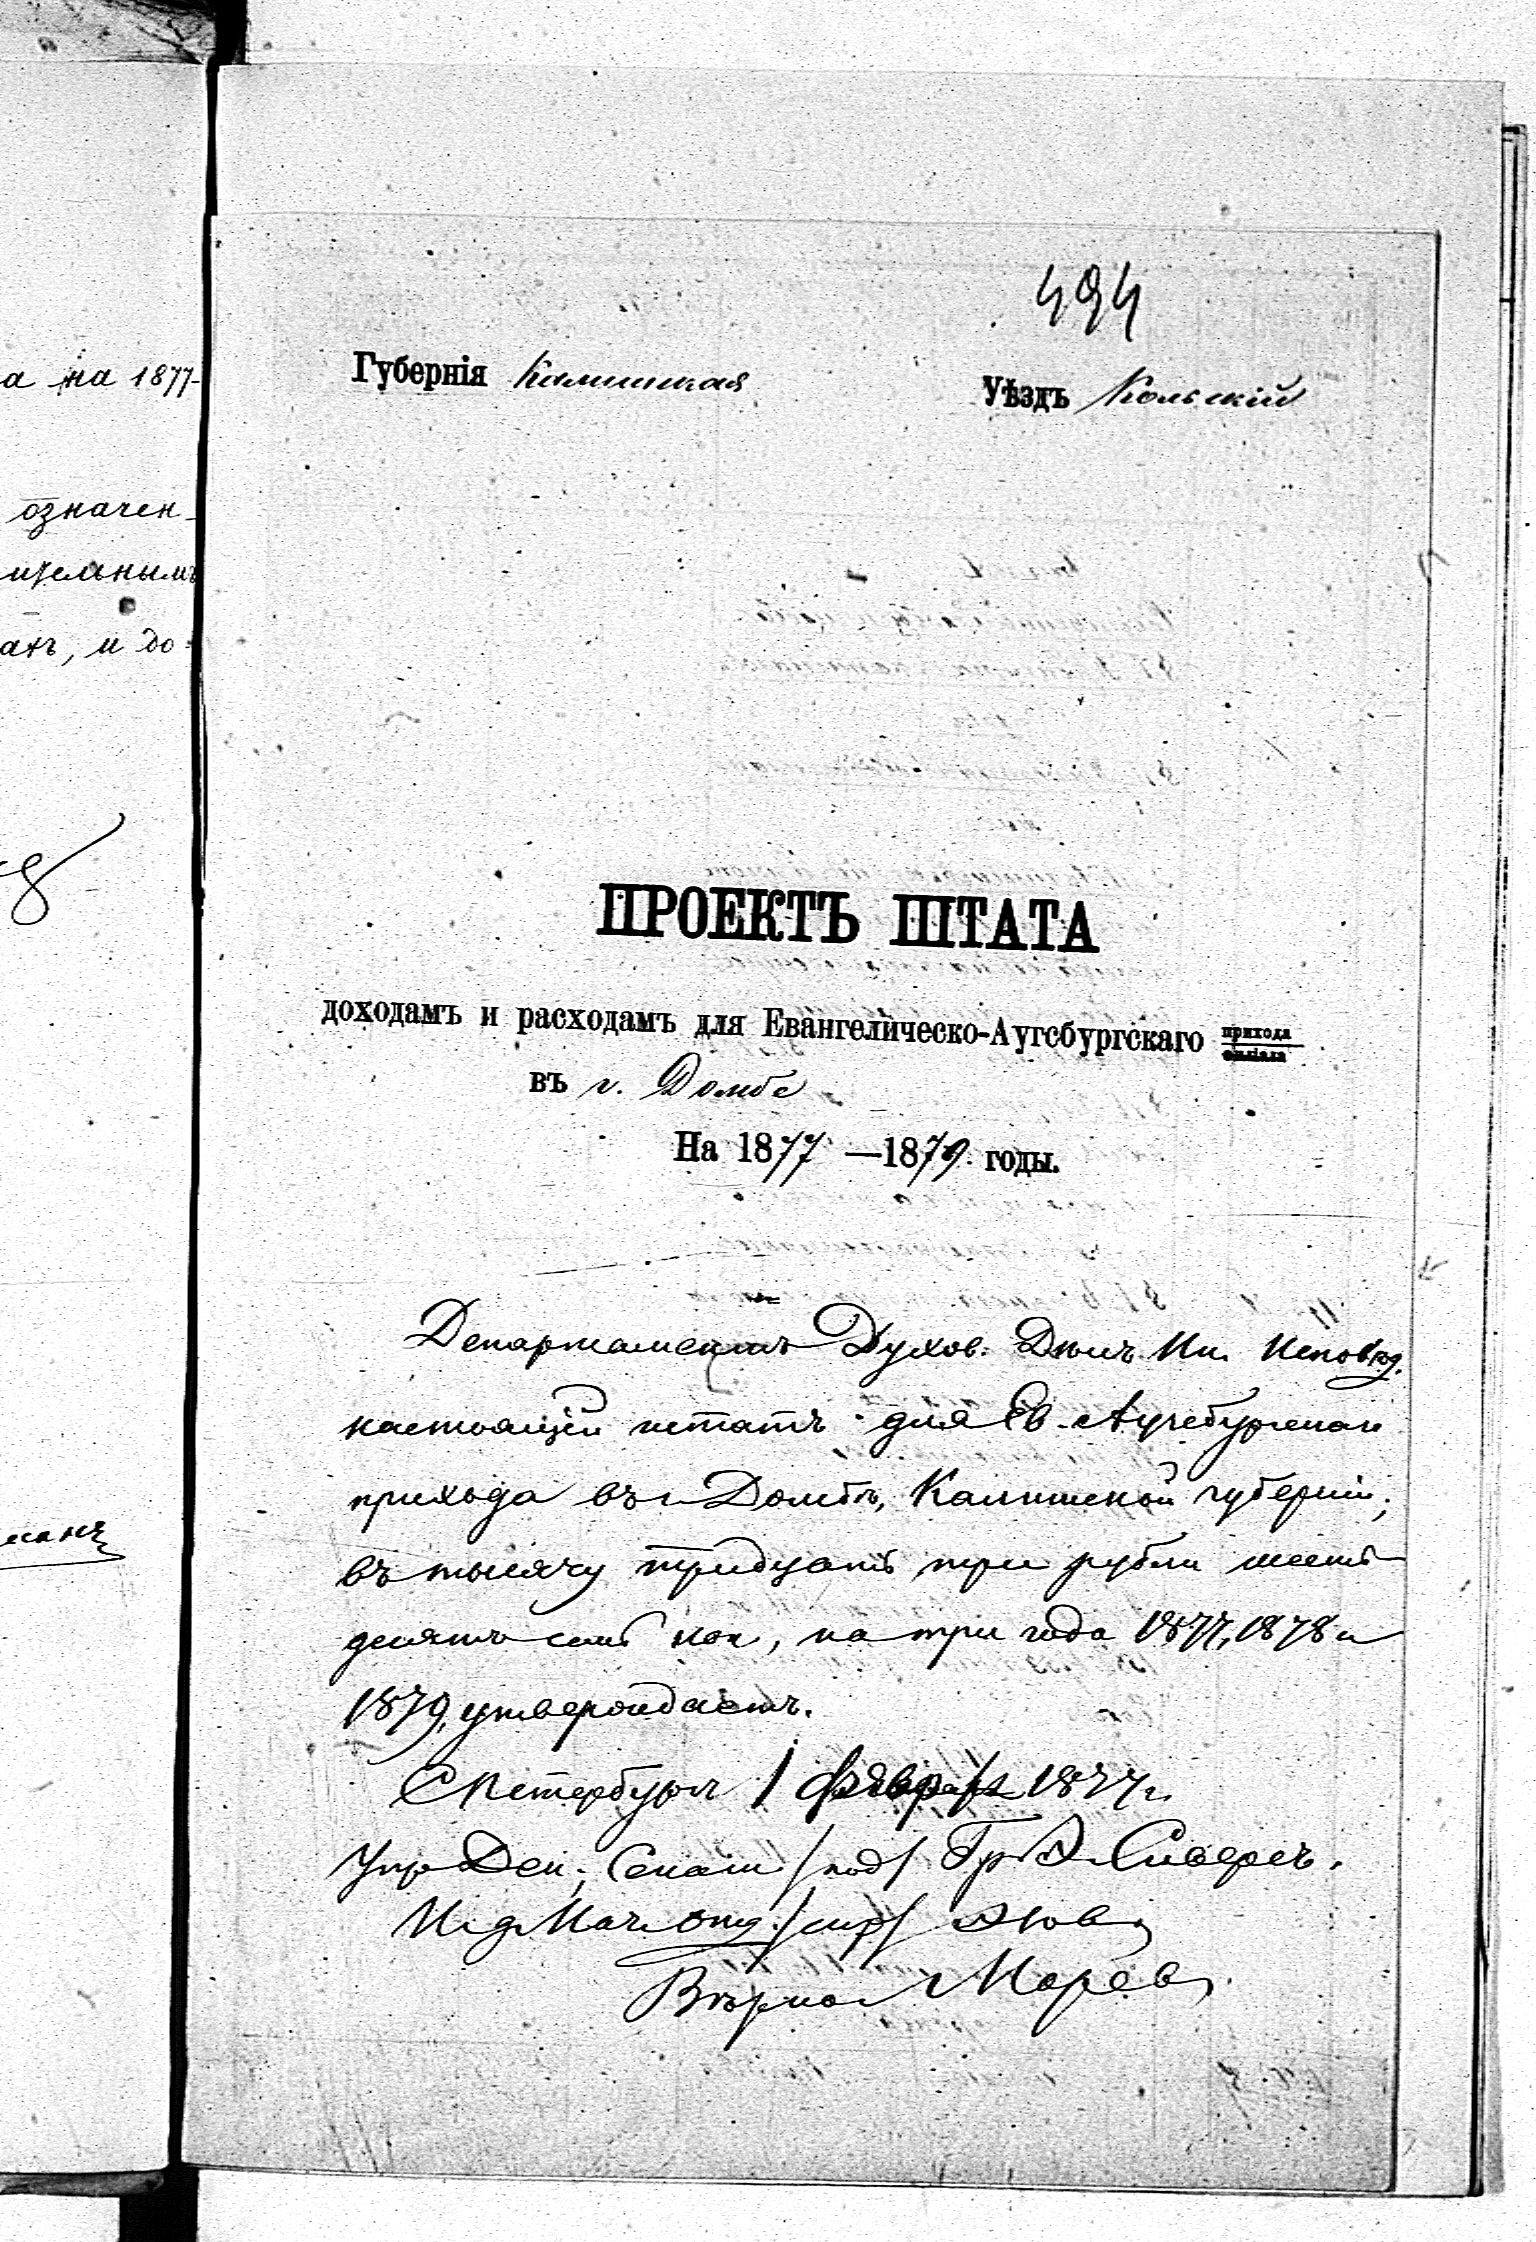 а на 1877-
означен-
ительнымъ
ахъ, и до-
494
Губернія Калишская Уѣздъ Кольскій
ПРОЕКТЪ ШТАТА
доходамъ и расходамъ для Евангелическо-Аугсбургскаго прихода
филіала
въ г. Домбе
На 1877 —1879 годы.
Департаментъ Духов. Дѣлъ Ин. Исповѣд.
настоящій штатъ для Ев. Аугсбургскаго
прихода въ г. Домбѣ, Калишской губерніи,
въ тысячу тридцать три рубля шесть
десятъ семь коп, на три года 1877, 1878 и
1879, утверждаетъ.
СПетербургъ 1 февраля 1877 г.
Упр Ден, Сенат /под/ Гр Э Сиверсъ.
И д Нач Отд. /скр/
Вѣрно